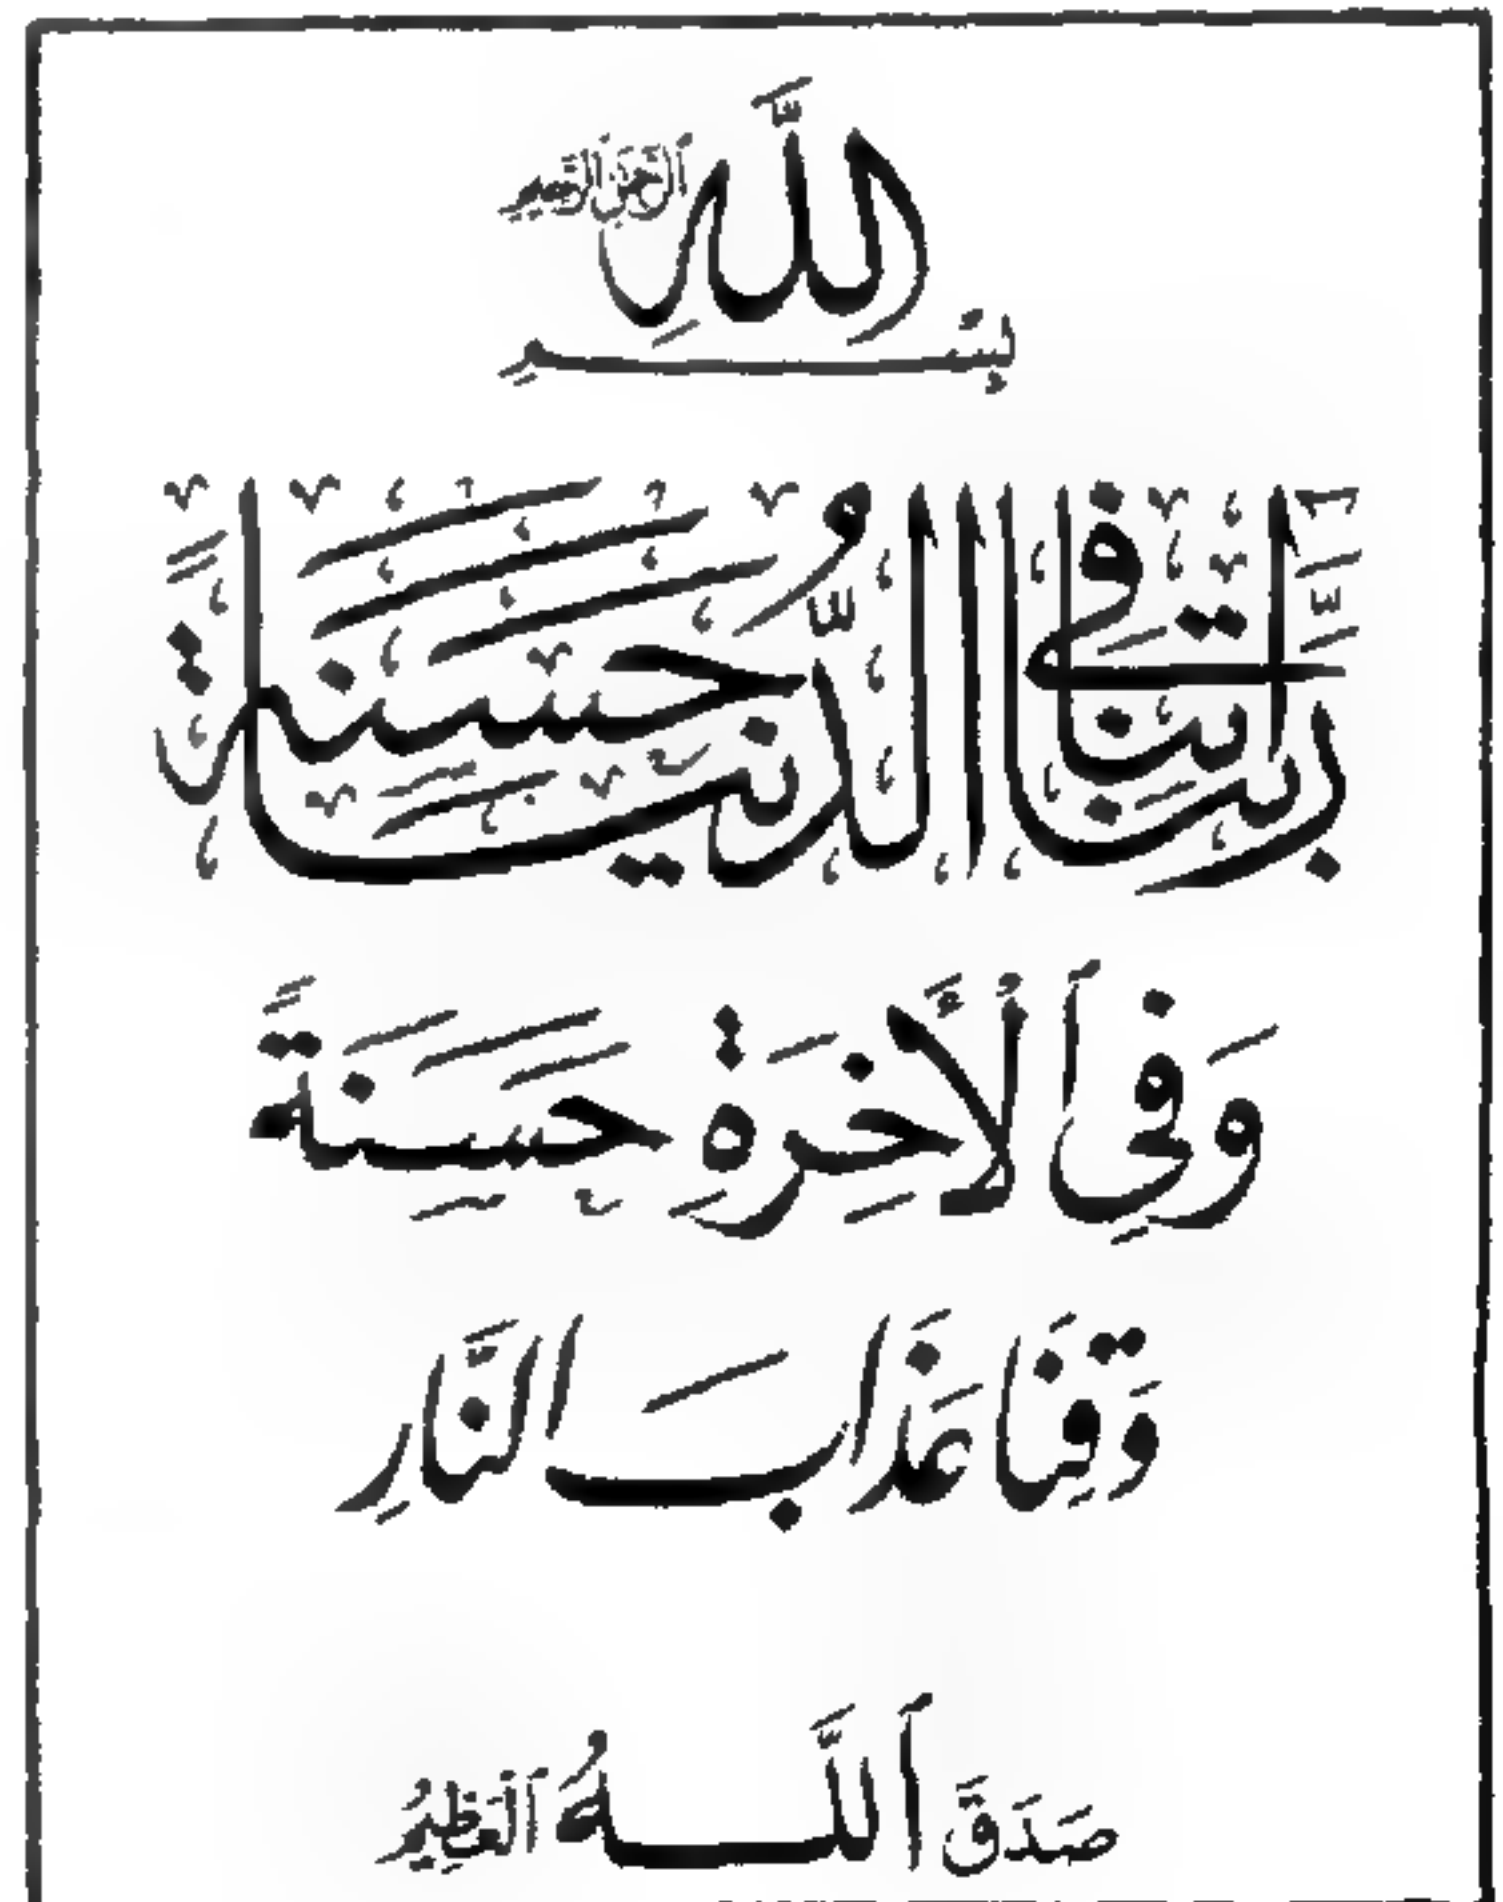 بِسْمِ اللَّهِ الرَّحْمَنِ الرَّحِيمِ
رَبَّنَا آتِنَا فِي الدُّنْيَا حَسَنَةً
وَفِي الْأَخِرَةِ حَسَنَةً
وَقِنَا عَذَابَ النَّارِ
صَدَقَ اللَّهُ الْعَظِيمُ